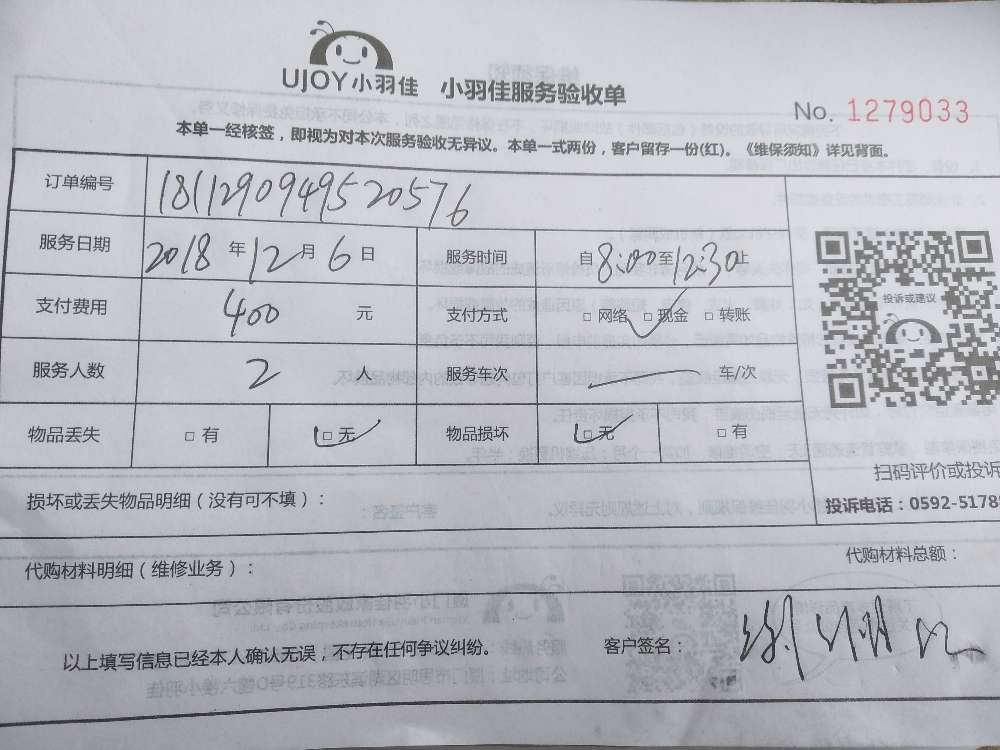 UJOY小羽佳 小羽佳服务验收单
No. 1279033
本单一经核签，即视为对本次服务验收无异议。本单一式两份，客户留存一份(红)。《维保须知》详见背面。
订单编号 181129094952 0576
服务日期 2018 年 12 月 6 日 服务时间 自 8:00 至 12:30 止
投诉或建议
支付费用 400 元 支付方式 □ 网络 □ 现金 □ 转账
服务人数 2 人 服务车次 车/次
物品丢失 □ 有 □ 无 物品损坏 □ 无 □ 有
扫码评价或投诉
损坏或丢失物品明细（没有可不填）：
投诉电话：0592-5178
代购材料总额：
代购材料明细（维修业务）：
以上填写信息已经本人确认无误，不存在任何争议纠纷。 客户签名：